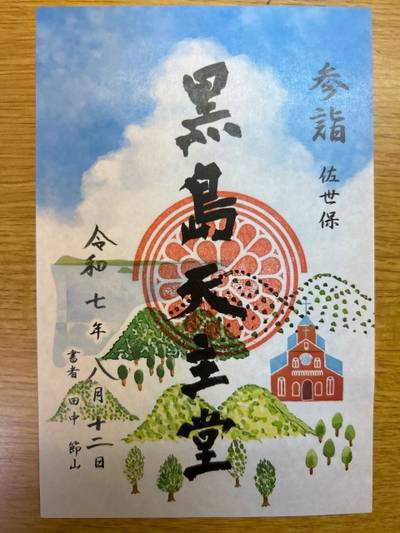 参詣
佐世保
黒島天主堂
令和七年八月十二日
書者 田中 節山